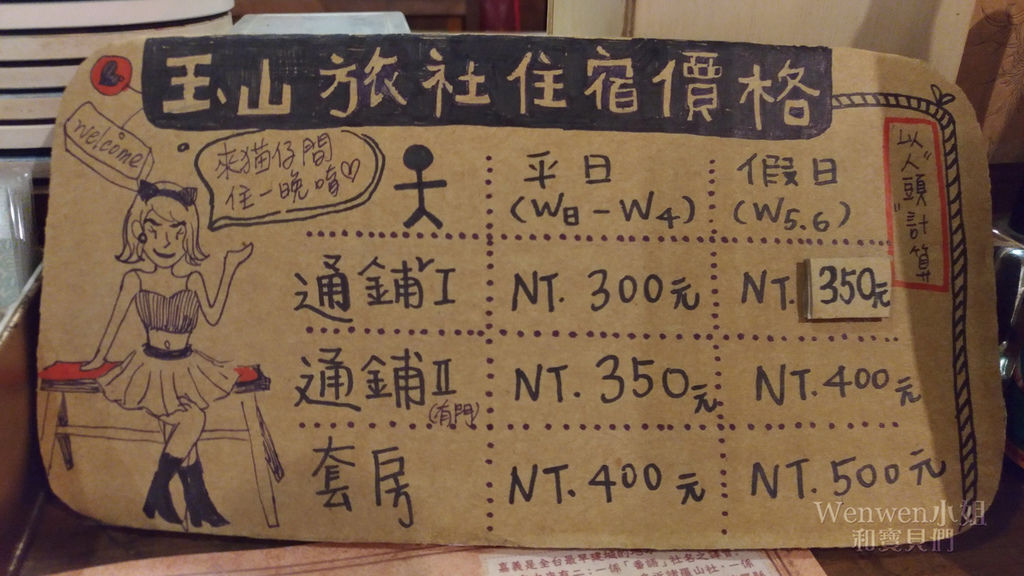 玉山旅社住宿價格
welcome
來猫仔間
住一晚唷♡
平日
(W日-W4)
假日
(W5.6)
以人"頭"計算
通鋪I
NT. 300元
NT. 350元
通鋪II
(有門)
NT. 350元
NT. 400元
套房
NT. 400元
NT. 500元
Wenwen小姐
和寶貝們
嘉義是全台最早建城的